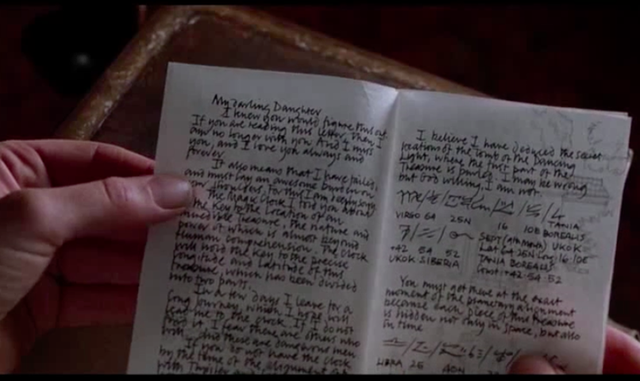 My Darling Daughter
I know you would figure this out
If you are reading this letter, then I
am no longer with you And I miss
you, and I love you always and
forever
It also means that I have failed,
and must put an awesome burden on
your shoulders, for this I am deeply sorry
The Magic Clock I told you about
is the Key to the location of an
incredible treasure, the nature and
power of which is almost beyond
human comprehension. The clock
will be the key to the precise
longitude and latitude of this
treasure, which has been divided
into two parts.
In a few days I leave for a
long journey, which I hope will
lead me to the clock. If I do not
find it, I fear there are others who
will and these are dangerous men
If you do not have the clock
by the time of the alignment
I believe I have deduced the secret
location of the Tomb of the Dancing
Light, where the first part of the
treasure is buried. I may be wrong
but God willing, I am not
VIRGO 64 25N 16 10E TANIA
BOREALIS
+42 54 52
UKOK SIBERIA
TANIA BOREALIS
You must get there at the exact
moment of the planetary alignment
because each piece of the treasure
is hidden not only in space, but also
in time
LIBRA 25